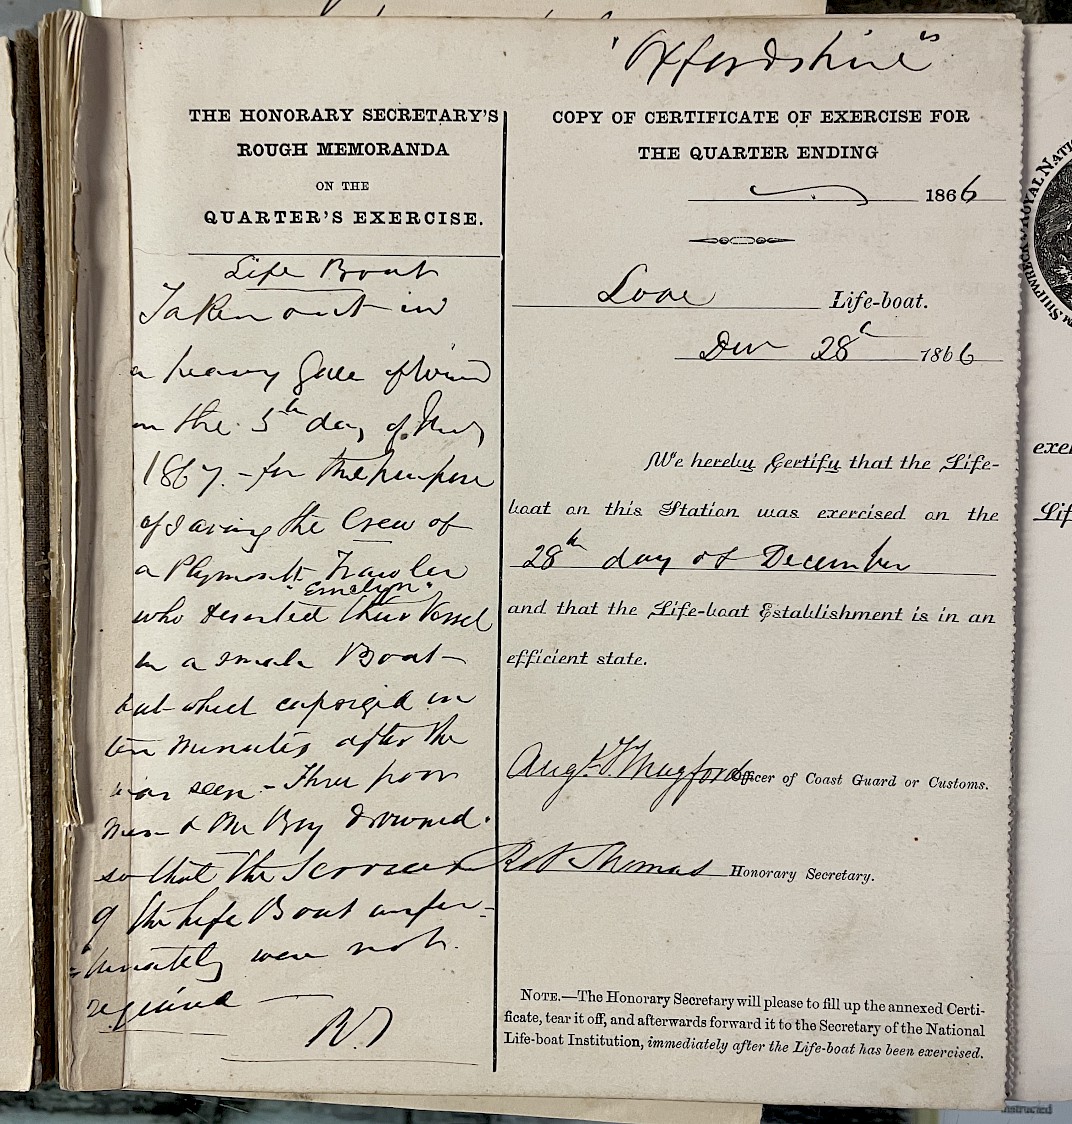 "Oxfordshire"
THE HONORARY SECRETARY'S
ROUGH MEMORANDA
ON THE
QUARTER'S EXERCISE.
Life Boat
Taken out in
a heavy Gale of Wind
on the 5th day of
1867. - for the purpose
of saving the Crew of
a Plymouth Trawler
"Emelyn"
who deserted their Vessel
in a small Boat
but which capsized in
ten minutes after she
was seen - Three poor
men & one Boy drowned.
so that the Services
of the Life Boat unfor-
=tunately were not
required
R.T
COPY OF CERTIFICATE OF EXERCISE FOR
THE QUARTER ENDING
1866
Looe Life-boat.
Decr 28th 1866
We hereby Certify that the Life-
boat on this Station was exercised on the
28th day of December
and that the Life-boat Establishment is in an
efficient state.
Augt. T. Mugford Officer of Coast Guard or Customs.
Robt Thomas Honorary Secretary.
NOTE.—The Honorary Secretary will please to fill up the annexed Certi-
ficate, tear it off, and afterwards forward it to the Secretary of the National
Life-boat Institution, immediately after the Life-boat has been exercised.